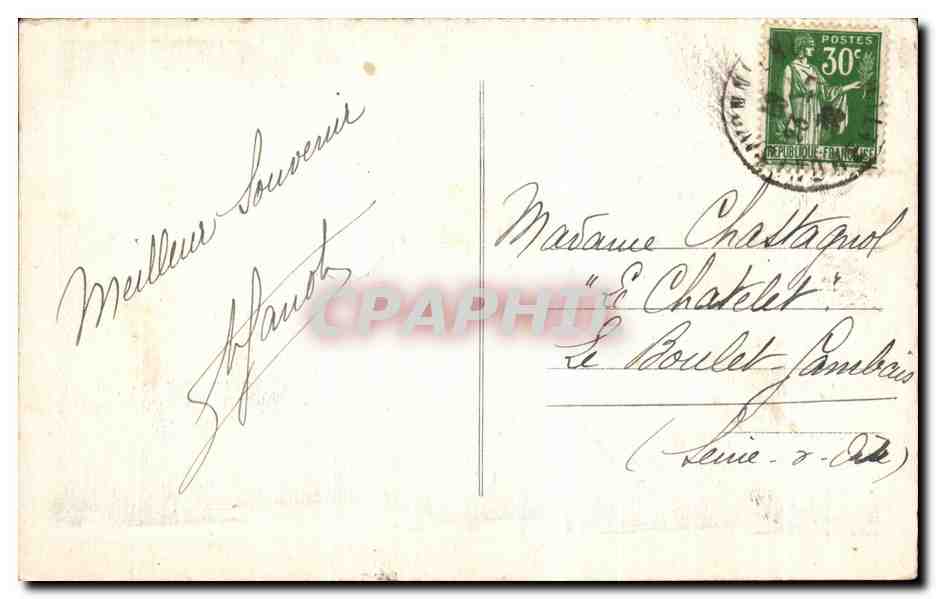 Meilleur Souvenir
POSTES
30c
REPUBLIQUE-FRANÇAISE
Madame Chastagnol
"Le Chatelet"
Le Boulet-Gambais
(Seine-&-Oise)
CPAPHIL